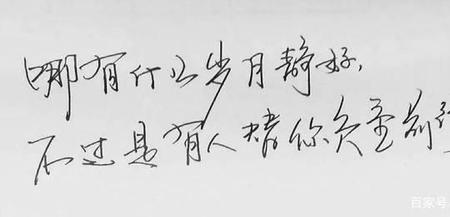 哪有什么岁月静好，
不过是有人替你负重前
百家号